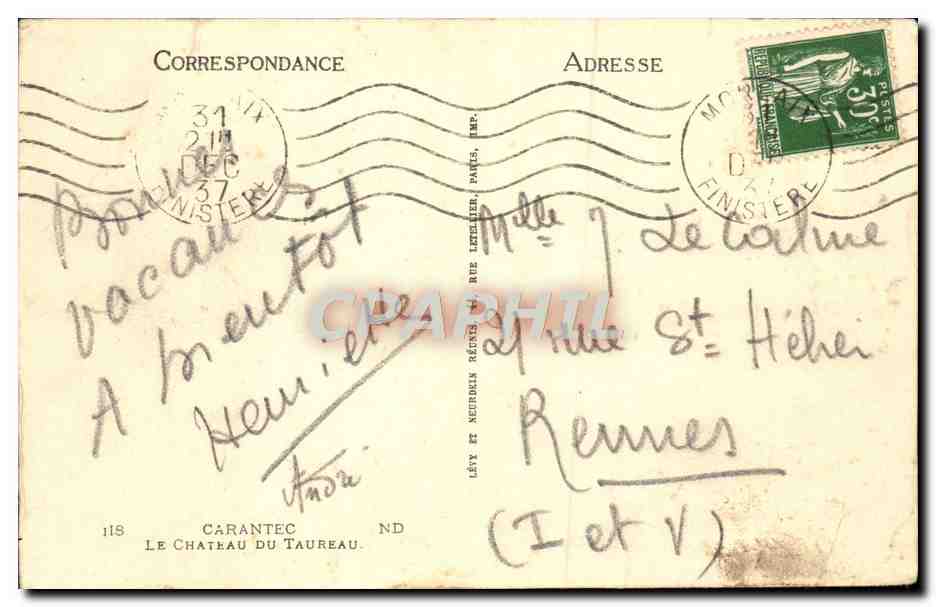 CORRESPONDANCE
ADRESSE
RÉPUBLIQUE FRANÇAISE
POSTES
30c
31
DEC
37
FINISTERE
MORLAIX
D
37
FINISTERE
Bonnes
vacances
A bientôt
Henriette
André
LÉVY ET NEURDEIN RÉUNIS, RUE LETELLIER, PARIS, IMP.
Mlle J Le
21 rue St Hélier
Rennes
(I et V)
CPAPHIL
118 CARANTEC ND
LE CHATEAU DU TAUREAU.